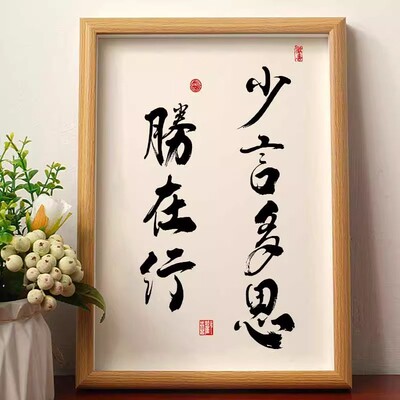 少言多思
勝在行